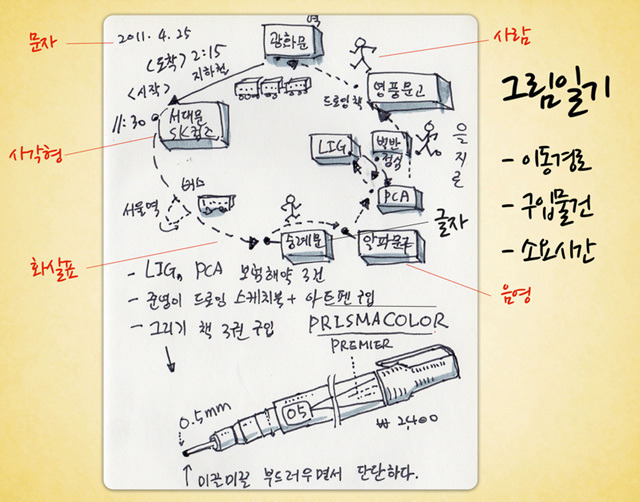 문자
2011. 4. 25
역
광화문
사람
<도착> 2:15
지하철
<시작>
11:30
서대문
SK컴즈
드로잉책
영풍문고
그림일기
LIG
백반
정식
을지로
사각형
- 이동경로
PCA
버스
서울역
- 구입물건
글자
숭례문
알파문구
- 소요시간
화살표
음영
- LIG, PCA 보험해약 3건
- 준영이 드로잉 스케치북 + 아트펜 구입
- 그리기 책 3권 구입
PRISMACOLOR
PREMIER
0.5mm
05
₩ 2,400
↑ 미끌미끌 부드러우면서 단단하다.